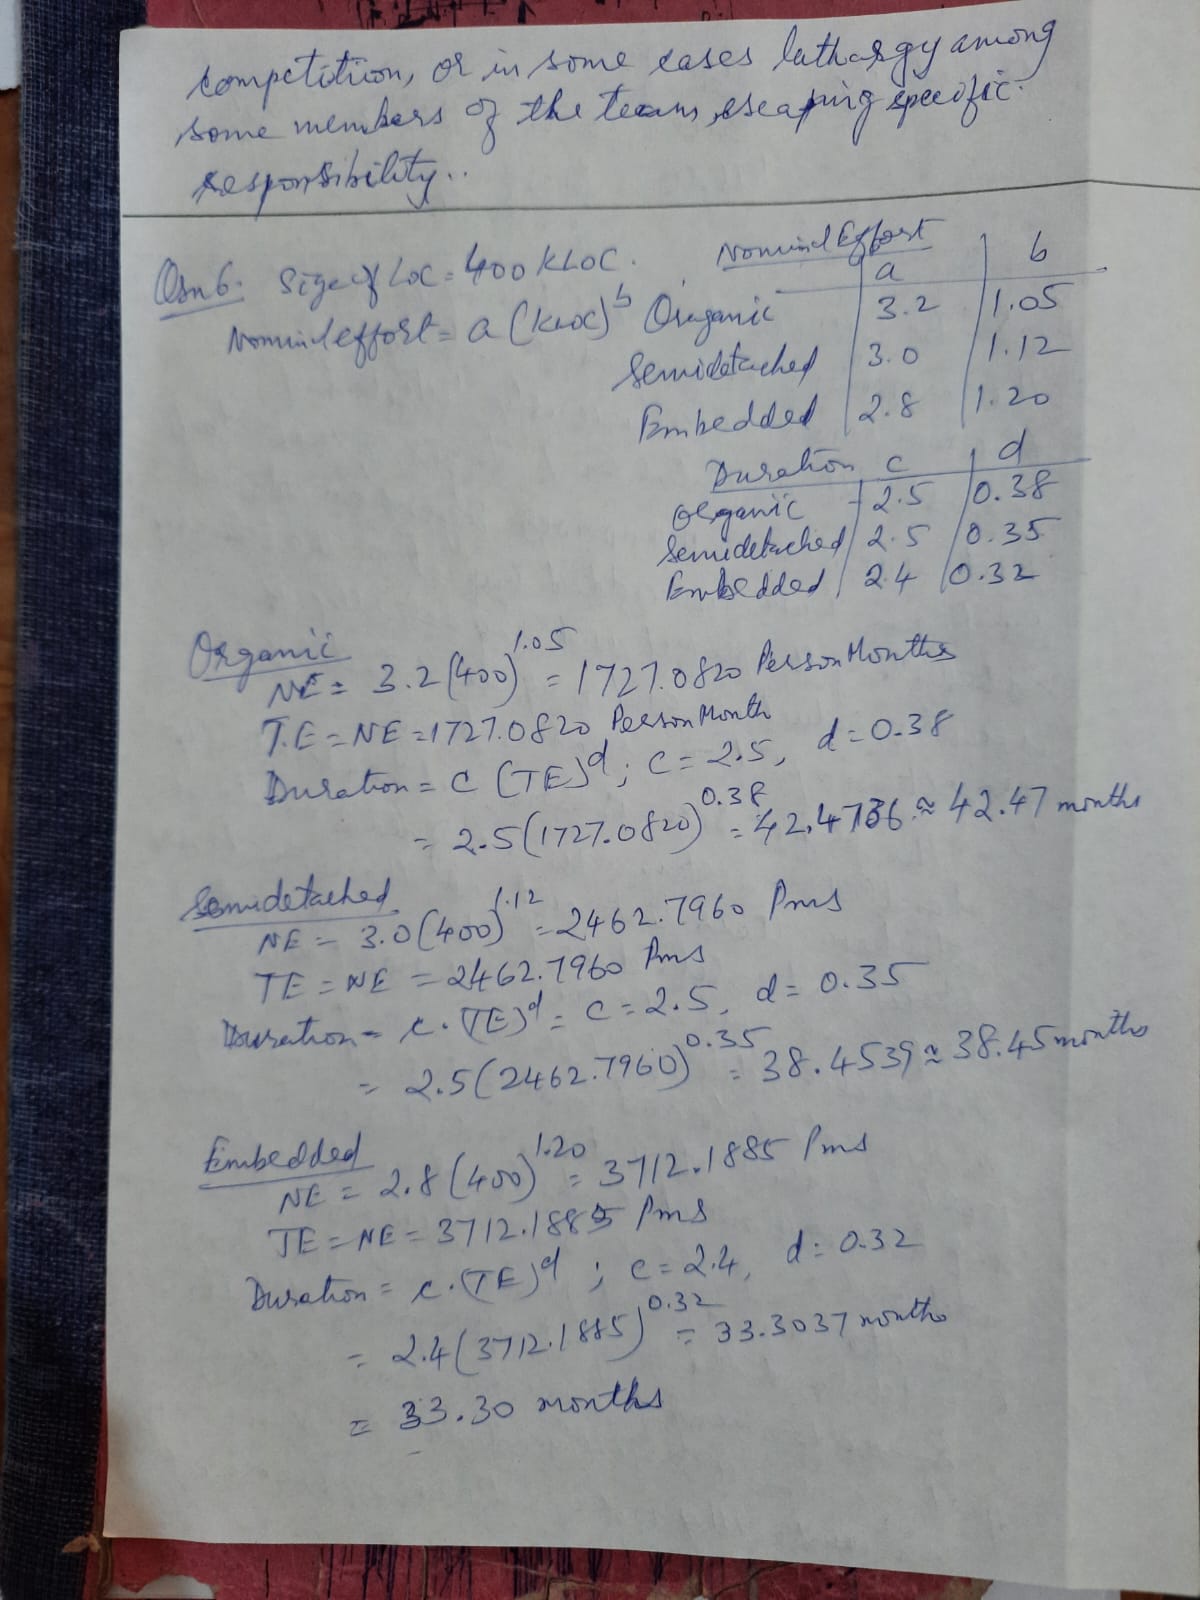 competition, or in some cases lathargy among
some members of the team, escaping specific
responsibility..
Qsn 6. Size of LOC = 400 KLOC.
Nominal effort = a (KLOC)^b
Nominal Effort
a | b
Organic | 3.2 | 1.05
Semidetached | 3.0 | 1.12
Embedded | 2.8 | 1.20
Duration c | d
Organic | 2.5 | 0.38
Semidetached | 2.5 | 0.35
Embedded | 2.4 | 0.32
Organic
NE = 3.2 (400)^1.05 = 1727.0820 Person Months
T.E = NE = 1727.0820 Person Month
Duration = C (TE)^d ; C = 2.5, d = 0.38
= 2.5 (1727.0820)^0.38 = 42.4736 ≈ 42.47 months
Semidetached
NE = 3.0 (400)^1.12 = 2462.7960 Pms
TE = NE = 2462.7960 Pms
Duration = c.(TE)^d = C = 2.5, d = 0.35
= 2.5 (2462.7960)^0.35 = 38.4539 ≈ 38.45 months
Embedded
NE = 2.8 (400)^1.20 = 3712.1885 Pms
TE = NE = 3712.1885 Pms
Duration = c.(TE)^d ; c = 2.4, d = 0.32
= 2.4 (3712.1885)^0.32 = 33.3037 months
= 33.30 months